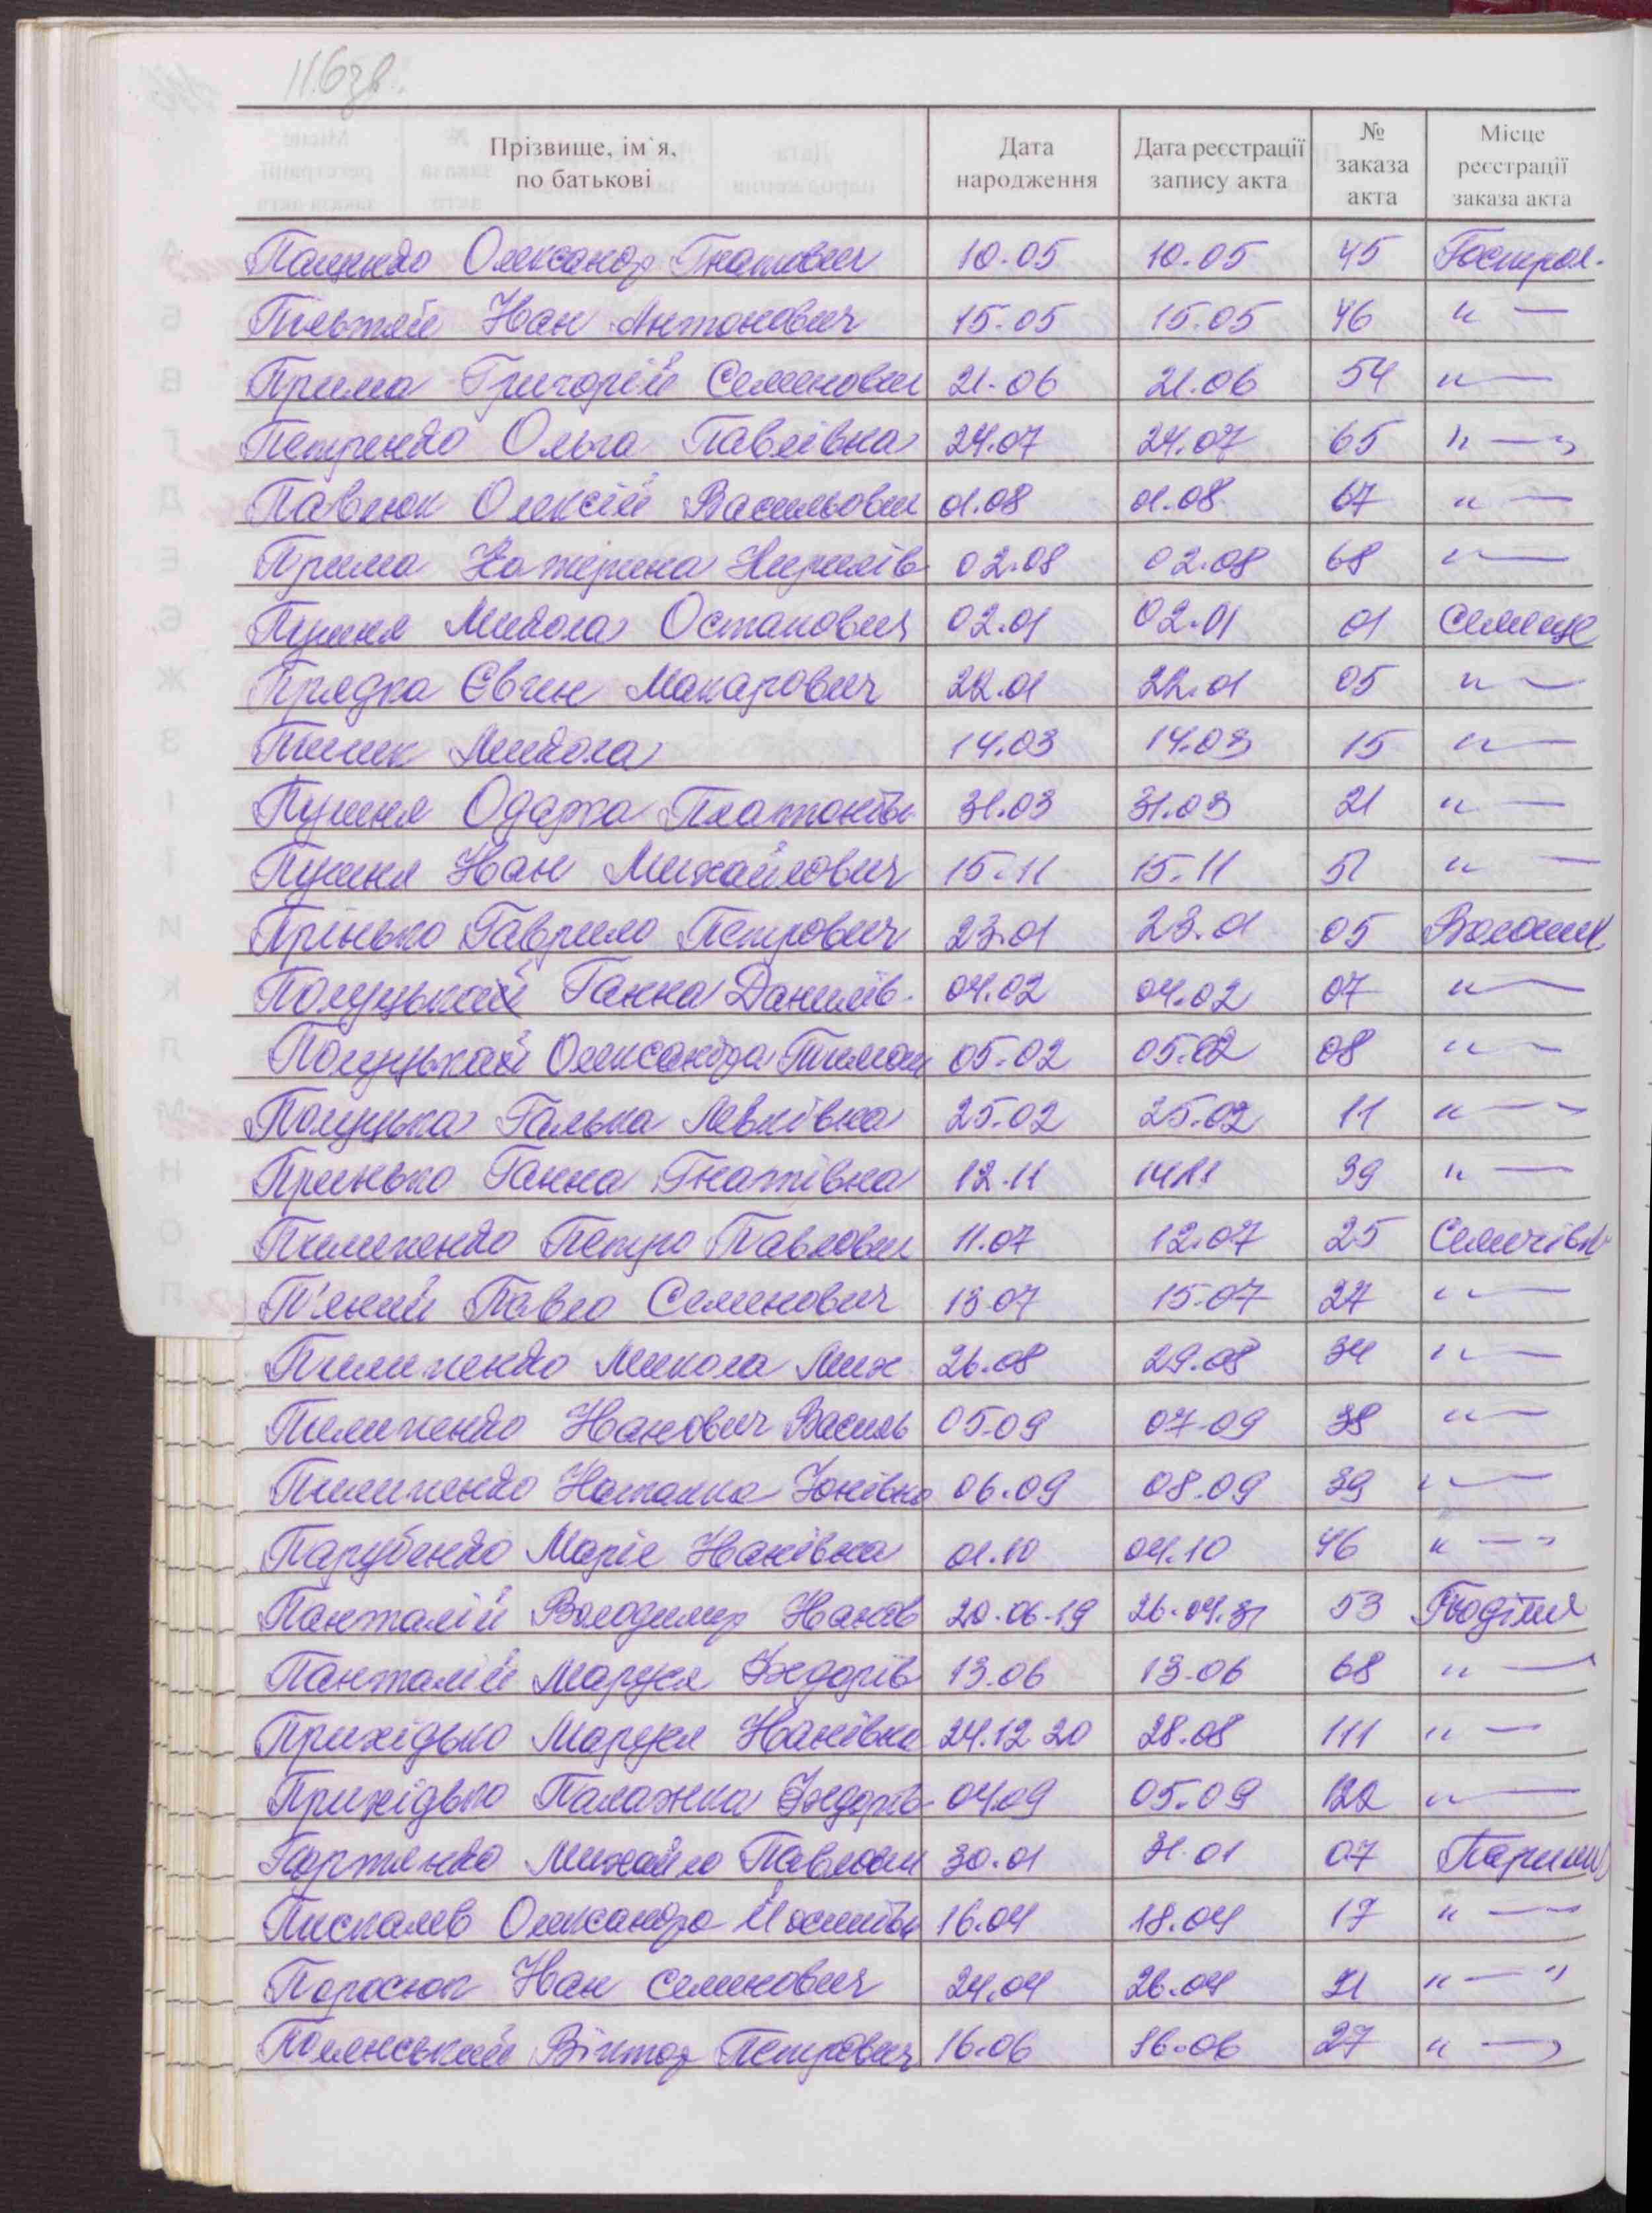 116зв.
Прізвище, ім`я, по батькові Дата народження Дата реєстрації запису акта № заказа акта Місце реєстрації заказа акта
Пащенко Олександр Гнатович 10.05 10.05 45 Гострол.
Іван Антонович 15.05 15.05 46 " —
Прима Григорій Семенович 21.06 21.06 54 " —
Петренко Ольга Павлівна 24.07 24.07 65 " —
Павлюк Олексій Васильович 01.08 01.08 67 " —
Прима Катерина Кирилів 02.08 02.08 68 " —
Пушня Микола Остапович 02.01 02.01 01
Прядка Євген Макарович 22.01 22.01 05 " —
Микола 14.03 14.03 15 " —
Пушня Одарка Платонівн 31.03 31.03 21 " —
Пушня Іван Михайлович 15.11 15.11 51 " —
Прінько Гаврило Петрович 23.01 23.01 05
Полуцький Ганна Данилів. 04.02 04.02 07 " —
Полуцький Олександра 05.02 05.02 08 " —
Полуцька Галька Левківна 25.02 25.02 11 " —
Принько Ганна Гнатівна 12.11 14.11 39 " —
Пилипенко Петро Павлович 11.07 12.07 25 Семчівк
П'яний Павло Семенович 13.07 15.07 27 " —
Пилипенко Микола Мих 26.08 29.08 34 " —
Пилипенко Іванович Василь 05.09 07.09 38 " —
Пилипенко Наталка Іонівна 06.09 08.09 39 " —
Парубенко Марія Іванівна 01.10 04.10 46 " —
Панталій Володимир Іванов 20.06.19 26.04.31 53
Панталій Маруся Федорів 13.06 13.06 68 " —
Прихідько Маруся Іванівна 24.12.20 28.08 111 " —
Прихідько Палажка Федорів 04.09 05.09 122 " —
Михайло Павлович 30.01 31.01 07
Пискалев Олександра Йосипівн 16.04 18.04 17 " —
Поросюк Іван Семенович 24.04 26.04 21 " — "
Полянський Віктор Петрович 16.06 16.06 27 " —